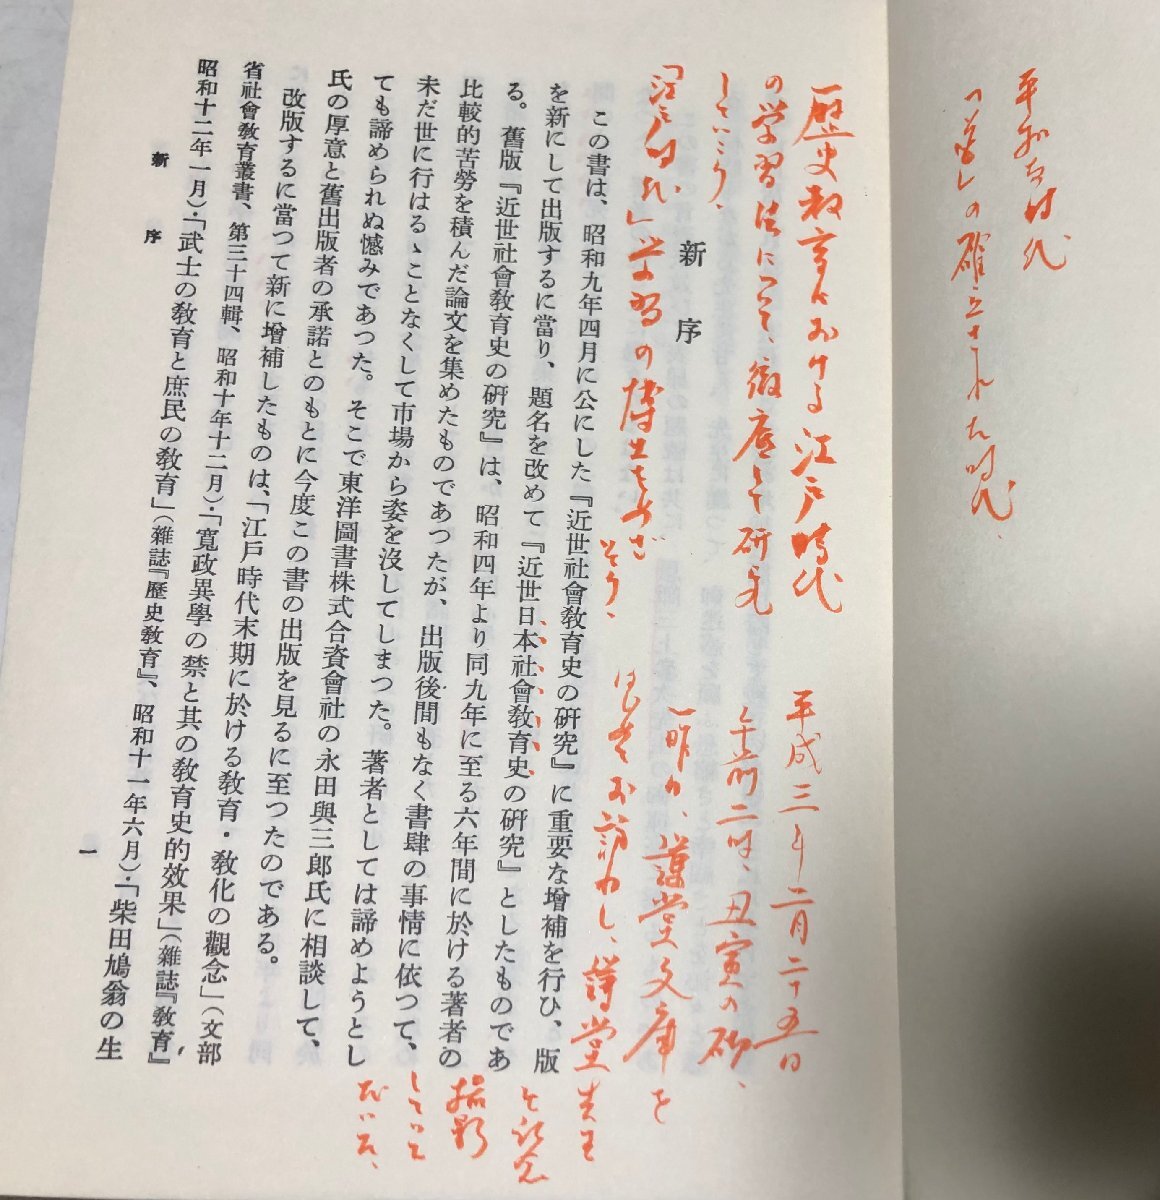 平和な時代
「道」の確立された時代、
歴史教育における江戸時代
の学習法について、徹底して研究
していこう、
「江戸時代」学習の博士をめざ
そう、
平成三年二月二十五日
午前二時、丑寅の刻、
一昨日、謙堂文庫を
はじめてお訪ねし、謙堂先生
と記念
撮影
していて
だいた、
新序
この書は、昭和九年四月に公にした『近世社會教育史の研究』に重要な增補を行ひ、版
を新にして出版するに當り、題名を改めて『近世日本社會教育史の研究』としたものであ
る。舊版『近世社會教育史の研究』は、昭和四年より同九年に至る六年間に於ける著者の
比較的苦勞を積んだ論文を集めたものであつたが、出版後間もなく書肆の事情に依つて、
未だ世に行はるゝことなくして市場から姿を沒してしまつた。著者としては諦めようとし
ても諦められぬ憾みであつた。そこで東洋圖書株式合資會社の永田與三郎氏に相談して、
氏の厚意と舊出版者の承諾とのもとに今度この書の出版を見るに至つたのである。
改版するに當つて新に增補したものは、「江戸時代末期に於ける教育・教化の觀念」(文部
省社會教育叢書、第三十四輯、昭和十年十二月)・「寬政異學の禁と其の教育史的效果」(雜誌『教育』
昭和十二年一月)・「武士の教育と庶民の教育」(雜誌『歷史教育』、昭和十一年六月)・「柴田鳩翁の生
新序
一